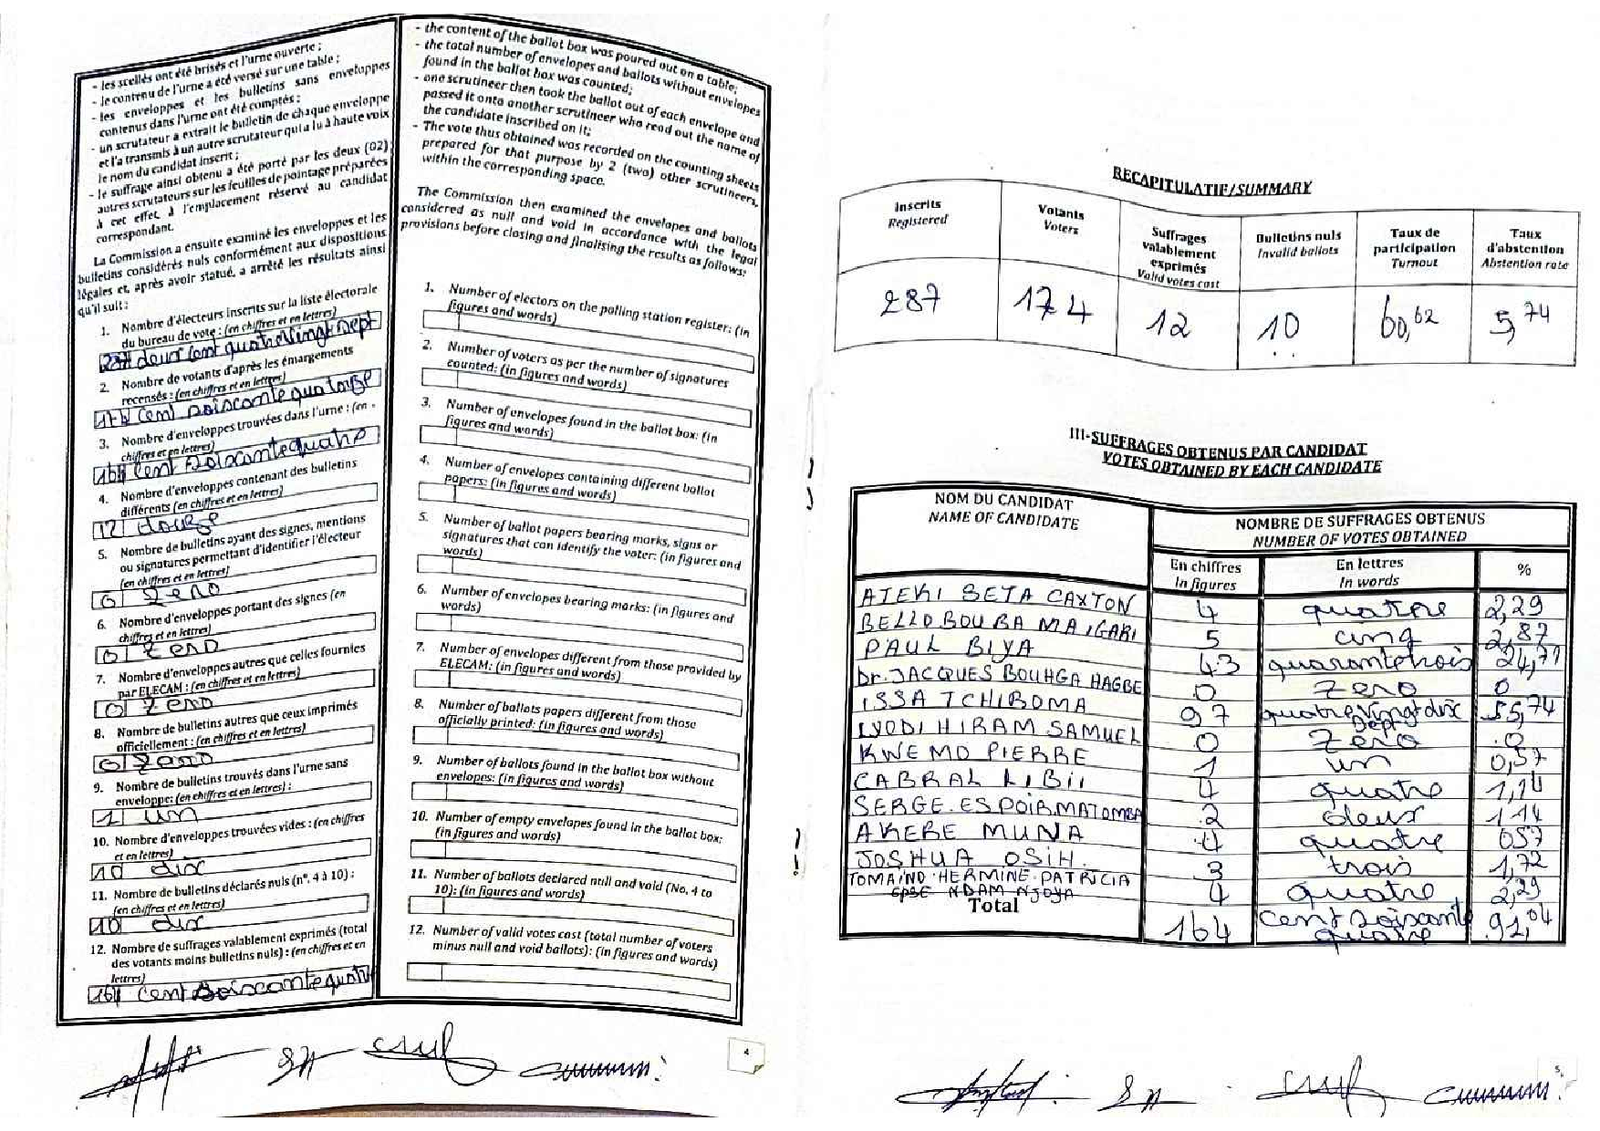 - les scellés ont été brisés et l'urne ouverte ;
- le contenu de l'urne a été versé sur une table ;
- les enveloppes et les bulletins sans enveloppes
contenus dans l'urne ont été comptés ;
- un scrutateur a extrait le bulletin de chaque enveloppe
et l'a transmis à un autre scrutateur qui l'a lu à haute voix
le nom du candidat inscrit ;
- le suffrage ainsi obtenu a été porté par les deux (02)
autres scrutateurs sur les feuilles de pointage préparées
à cet effet, à l'emplacement réservé au candidat
correspondant.
La Commission a ensuite examiné les enveloppes et les
bulletins considérés nuls conformément aux dispositions
légales et, après avoir statué, a arrêté les résultats ainsi
qu'il suit :
1. Nombre d'électeurs inscrits sur la liste électorale
du bureau de vote : (en chiffres et en lettres)
287 deux cent quatre vingt sept
2. Nombre de votants d'après les émargements
recensés : (en chiffres et en lettres)
174 cent soixante quatorze
3. Nombre d'enveloppes trouvées dans l'urne : (en
chiffres et en lettres)
164 cent soixante quatre
4. Nombre d'enveloppes contenant des bulletins
différents (en chiffres et en lettres)
12 douze
5. Nombre de bulletins ayant des signes, mentions
ou signatures permettant d'identifier l'électeur
(en chiffres et en lettres)
0 zero
6. Nombre d'enveloppes portant des signes (en
chiffres et en lettres)
0 zero
7. Nombre d'enveloppes autres que celles fournies
par ELECAM : (en chiffres et en lettres)
0 zero
8. Nombre de bulletins autres que ceux imprimés
officiellement : (en chiffres et en lettres)
0 zero
9. Nombre de bulletins trouvés dans l'urne sans
enveloppe: (en chiffres et en lettres) :
1 un
10. Nombre d'enveloppes trouvées vides : (en chiffres
et en lettres)
10 dix
11. Nombre de bulletins déclarés nuls (n°. 4 à 10) :
(en chiffres et en lettres)
10 dix
12. Nombre de suffrages valablement exprimés (total
des votants moins bulletins nuls) : (en chiffres et en
lettres)
164 cent soixante quatre
- the content of the ballot box was poured out on a table;
- the total number of envelopes and ballots without envelopes
found in the ballot box was counted;
- one scrutineer then took the ballot out of each envelope and
passed it onto another scrutineer who read out the name of
the candidate inscribed on it;
- The vote thus obtained was recorded on the counting sheets
prepared for that purpose by 2 (two) other scrutineers,
within the corresponding space.
The Commission then examined the envelopes and ballots
considered as null and void in accordance with the legal
provisions before closing and finalising the results as follows:
1. Number of electors on the polling station register: (in
figures and words)
2. Number of voters as per the number of signatures
counted: (in figures and words)
3. Number of envelopes found in the ballot box: (in
figures and words)
4. Number of envelopes containing different ballot
papers: (in figures and words)
5. Number of ballot papers bearing marks, signs or
signatures that can identify the voter: (in figures and
words)
6. Number of envelopes bearing marks: (in figures and
words)
7. Number of envelopes different from those provided by
ELECAM: (in figures and words)
8. Number of ballots papers different from those
officially printed: (in figures and words)
9. Number of ballots found in the ballot box without
envelopes: (in figures and words)
10. Number of empty envelopes found in the ballot box:
(in figures and words)
11. Number of ballots declared null and void (No. 4 to
10): (in figures and words)
12. Number of valid votes cast (total number of voters
minus null and void ballots): (in figures and words)
4
RECAPITULATIF/SUMMARY
Inscrits Registered
Votants Voters
Suffrages valablement exprimés Valid votes cast
Bulletins nuls Invalid ballots
Taux de participation Turnout
Taux d'abstention Abstention rate
287 174 12 10 60,62 5,74
III-SUFFRAGES OBTENUS PAR CANDIDAT
VOTES OBTAINED BY EACH CANDIDATE
NOM DU CANDIDAT NAME OF CANDIDATE
NOMBRE DE SUFFRAGES OBTENUS
NUMBER OF VOTES OBTAINED
En chiffres In figures
En lettres In words
%
ATEKI SETA CAXTON 4 quatre 2,29
BELLO BOUBA MAIGARI 5 cinq 2,87
PAUL BIYA 43 quarante trois 24,71
Dr. JACQUES BOUHGA HAGBE 0 zero 0
ISSA TCHIROMA 97 quatre vingt dix sept 55,74
IYODI HIRAM SAMUEL 0 zero 0
KWEMO PIERRE 1 un 0,57
CABRAL LIBII 4 quatre 1,14
SERGE ESPOIR MATOMBA 2 deux 1 14
AKERE MUNA 4 quatre 057
JOSHUA OSIH. 3 trois 1,72
TOMAINO HERMINE PATRICIA
EPSE NDAM NJOYA 4 quatre 2,29
Total 164 cent soixante quatre 91,04
5